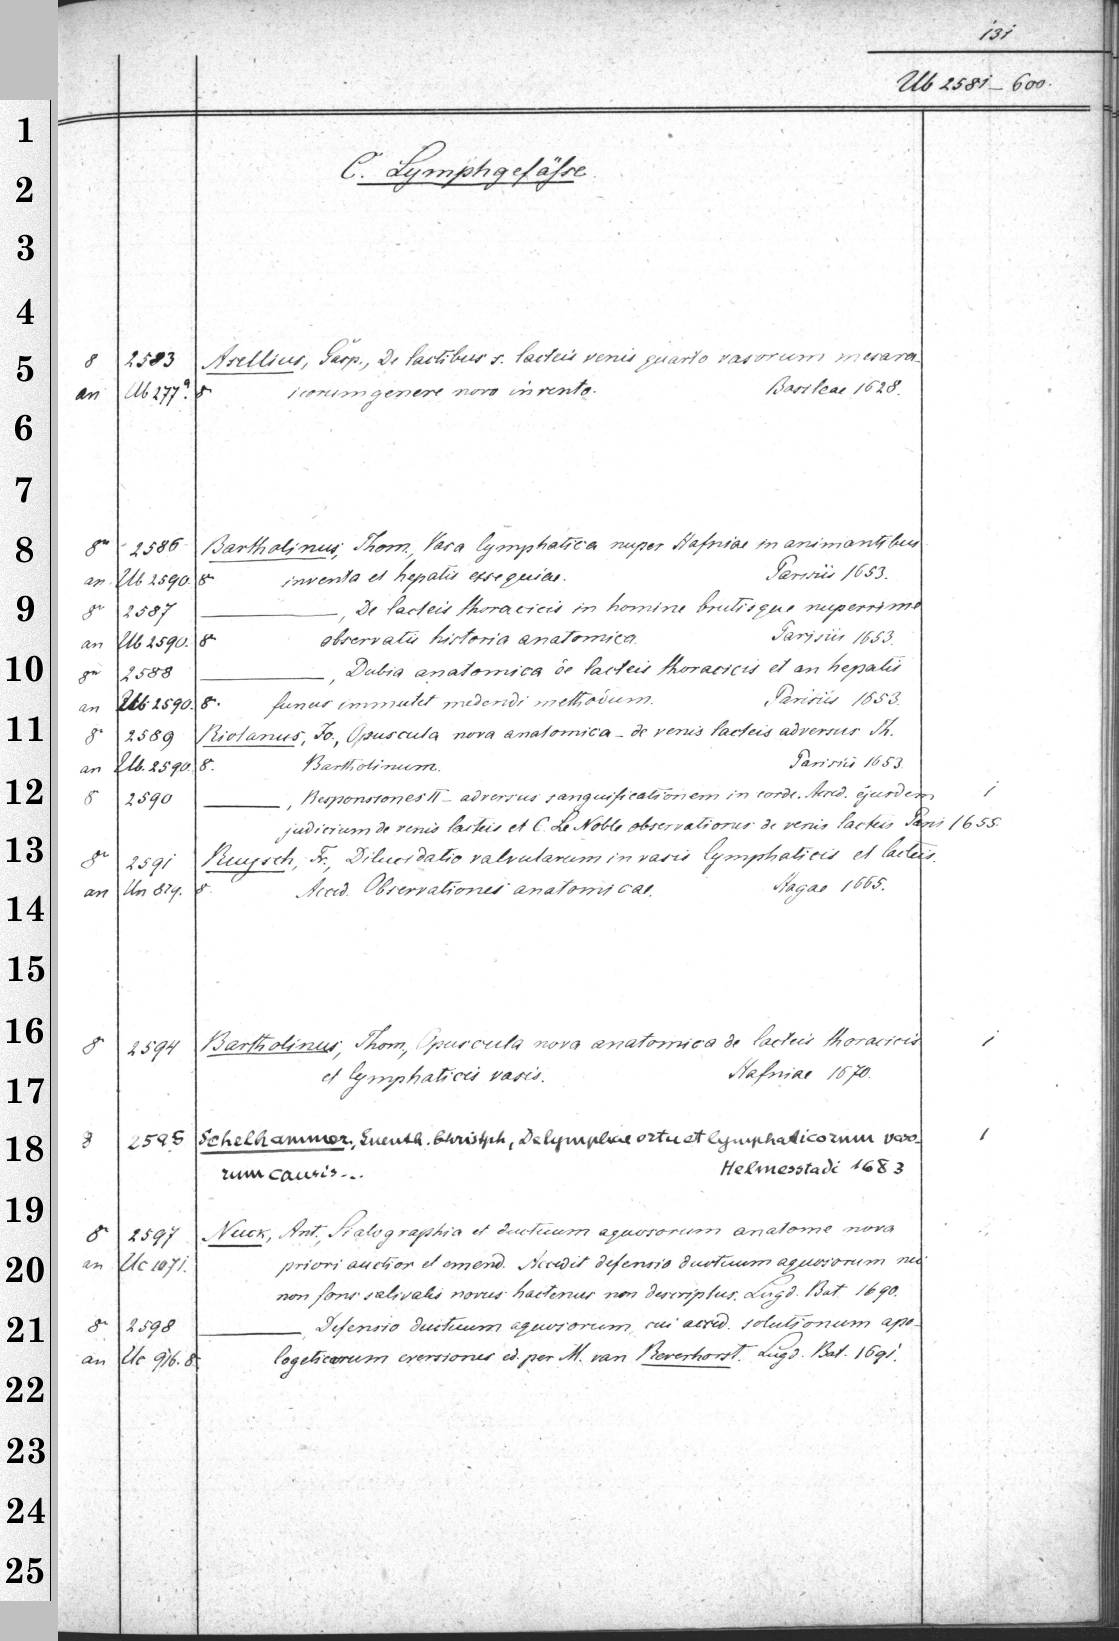 131
Ub 2581 – 600.
C. Lymphgefäſse
8 2583 Asellius, Gasp., De lactibus s. lacteis venis quarto vasorum mesara-
an Ub 277a. 8 icorum genere novo invento. Basileae 1628.
8° 2586 Bartholinus, Thom., Vasa lymphatica nuper Hafniae in animantibus
an Ub 2590. 8 inventa et hepatis exsequiae. Parisiis 1653.
8° 2587 ———, De lacteis thoracicis in homine brutisque nuperrime
an Ub 2590. 8 observatis historia anatomica. Parisiis 1653.
8° 2588 ———, Dubia anatomica de lacteis thoracicis et an hepatis
an Ub 2590. 8. funus immutet medendi methodum. Parisiis 1653.
8° 2589 Riolanus, Jo., Opuscula nova anatomica – de venis lacteis adversus Th.
an Ub. 2590. 8. Bartholinum. Parisiis 1653
8 2590 ———, Responsiones II – adversus sanguificationem in corde. Acced. ejusdem 1
judicium de venis lacteis et C. Le Noble observationes de venis lacteis Paris 1655.
8° 2591 Ruysch, Fr., Dilucidatio valvularum in vasis lymphaticis et lacteis.
an Un 874. 8 Acced. Observationes anatomicae. Hagae 1665.
8° 2594 Bartholinus, Thom., Opuscula nova anatomica de lacteis thoracicis 1
et lymphaticis vasis. Hafniae 1670.
8 2595 Schelhammer, Guenth. Christph, De lymphae ortu et lymphaticorum vaso- 1
rum causis... Helmestadi 1683
8° 2597 Nuck, Ant., Sialographia et ductuum aquosorum anatome nova
an Uc 1071. priori auctior et emend. Accedit defensio ductuum aquosorum nec
non fons salivalis novus hactenus non descriptus. Lugd. Bat 1690.
8° 2598 ———, Defensio ductuum aquosorum, cui acced. solutionum apo-
an Uc 916. 8. logeticarum eversiones ed. per M. van Reverhorst. Lugd. Bat. 1691.
1
2
3
4
5
6
7
8
9
10
11
12
13
14
15
16
17
18
19
20
21
22
23
24
25